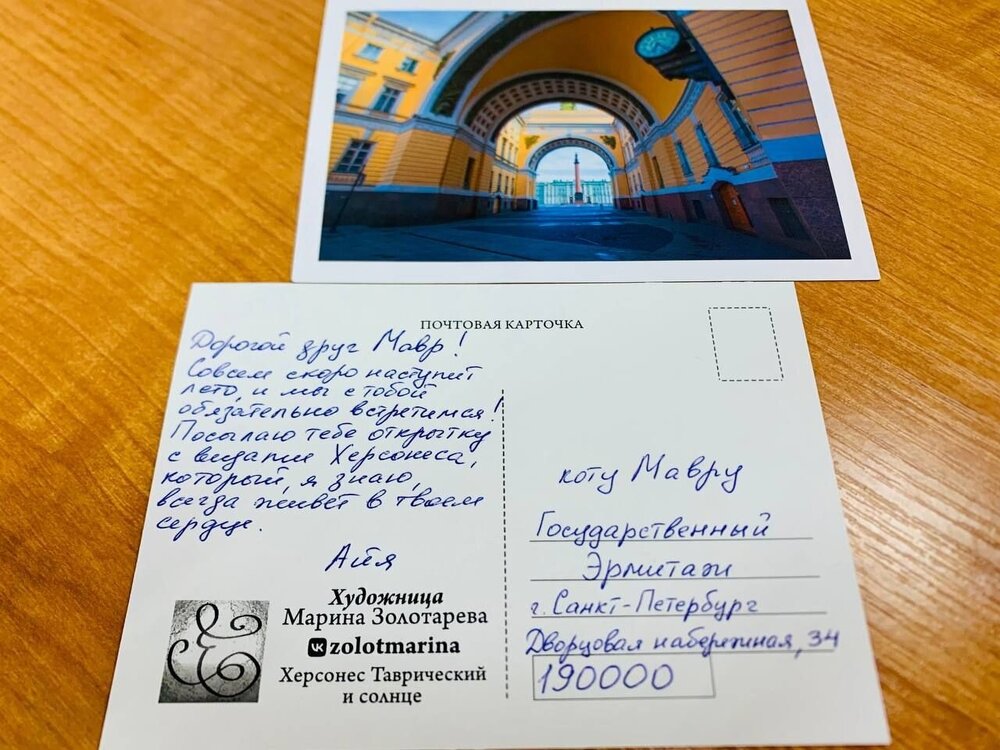 ПОЧТОВАЯ КАРТОЧКА
Дорогой друг Мавр!
Совсем скоро наступит
лето, и мы с тобой
обязательно встретимся!
Посылаю тебе открытку
с видами Херсонеса,
который, я знаю,
всегда живёт в твоем
сердце.
Айя
Художница
Марина Золотарева
zolotmarina
Херсонес Таврический
и солнце
коту Мавру
Государственный
Эрмитаж
г. Санкт-Петербург
Дворцовая набережная, 34
190000